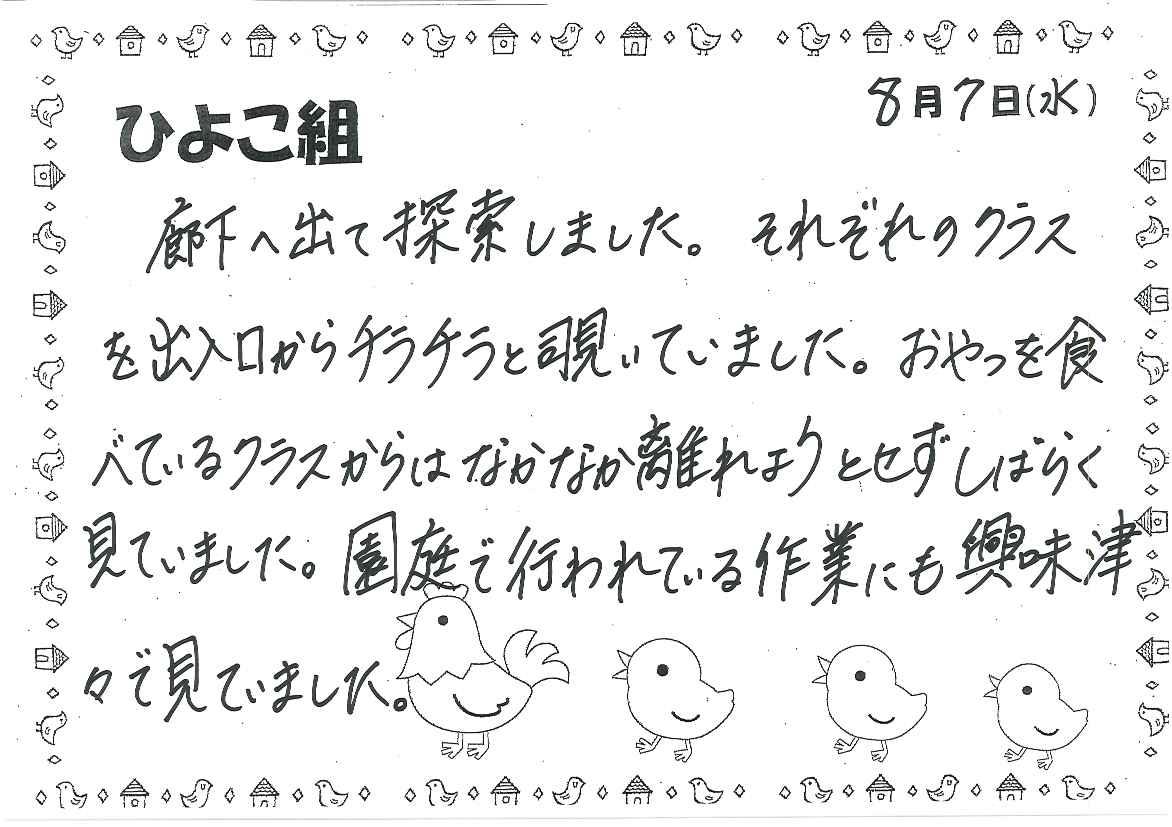 8月7日(水)
ひよこ組
廊下へ出て探索しました。それぞれのクラス
を出入口からチラチラと覗いていました。おやつを食
べているクラスからはなかなか離れようとせずしばらく
見ていました。園庭で行われている作業にも興味津
々で見ていました。